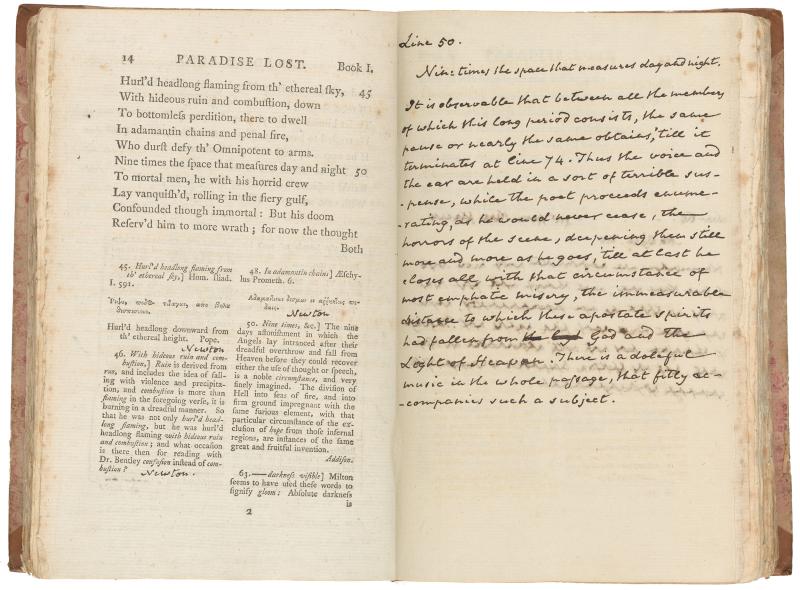 14 PARADISE LOST. Book I.
Hurl'd headlong flaming from th' ethereal ſky, 45
With hideous ruin and combuſtion, down
To bottomleſs perdition, there to dwell
In adamantin chains and penal fire,
Who durſt defy th' Omnipotent to arms.
Nine times the ſpace that meaſures day and night 50
To mortal men, he with his horrid crew
Lay vanquiſh'd, rolling in the fiery gulf,
Confounded though immortal: But his doom
Reſerv'd him to more wrath; for now the thought
Both
45. Hurl'd headlong flaming from
th' ethereal ſky,] Hom. Iliad.
I. 591.
Hurl'd headlong downward from
th' ethereal height. Pope.
Newton
46. With hideous ruin and com-
buſtion,] Ruin is derived from
ruo, and includes the idea of fall-
ing with violence and precipita-
tion, and combuſtion is more than
flaming in the foregoing verſe, it is
burning in a dreadful manner. So
that he was not only hurl'd head-
long flaming, but he was hurl'd
headlong flaming with hideous ruin
and combuſtion; and what occaſion
is there then for reading with
Dr. Bentley confuſion inſtead of com-
buſtion?
Newton.
48. In adamantin chains] Æſchy-
lus Prometh. 6.
Newton
50. Nine times, &c.] The nine
days aſtoniſhment in which the
Angels lay intranced after their
dreadful overthrow and fall from
Heaven before they could recover
either the uſe of thought or ſpeech,
is a noble circumſtance, and very
finely imagined. The diviſion of
Hell into ſeas of fire, and into
firm ground impregnant with the
ſame furious element, with that
particular circumſtance of the ex-
cluſion of hope from thoſe infernal
regions, are inſtances of the ſame
great and fruitful invention.
Addiſon.
63.—darkneſs viſible] Milton
ſeems to have uſed theſe words to
ſignify gloom: Abſolute darkneſs
is
2
Line 50.
Nine times the space that measures day and night.
It is observable that between all the members
of which this long period consists, the same
pause or nearly the same obtains, till it
terminates at line 74. Thus the voice and
the ear are held in a sort of terrible sus-
-pense, while the poet proceeds enume-
-rating, as he would never cease, the
horrors of the scene, deepening them still
more and more as he goes, 'till at last he
closes all, with that circumstance of
most emphatic misery, the immeasurable
distance to which these apostate spirits
had fallen from God and the
Light of Heaven. There is a doleful
music in the whole passage, that fitly ac-
-companies such a subject.